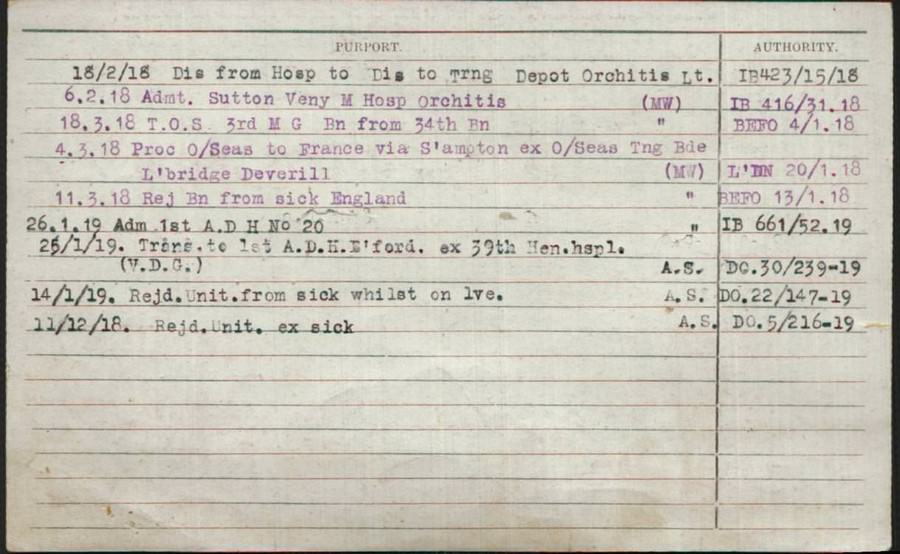 PURPORT. AUTHORITY.
18/2/18 Dis from Hosp to Dis to Trng Depot Orchitis Lt. IB423/15/18
6.2.18 Admt. Sutton Veny M Hosp Orchitis (MW) IB 416/31.18
18.3.18 T.O.S 3rd M G Bn from 34th Bn " BEFO 4/1.18
4.3.18 Proc O/Seas to France via S'ampton ex O/Seas Tng Bde
L'bridge Deverill (MW) L'DN 20/1.18
11.3.18 Rej Bn from sick England " BEFO 13/1.18
26.1.19 Adm 1st A.D H No 20 " IB 661/52.19
25/1/19. Trans.to 1st A.D.H.E'ford. ex 39th Hen.hspl.
(V.D.G.) A.S. DO.30/239-19
14/1/19. Rejd.Unit.from sick whilst on lve. A.S. DO.22/147-19
11/12/18. Rejd.Unit. ex sick A.S. DO.5/216-19